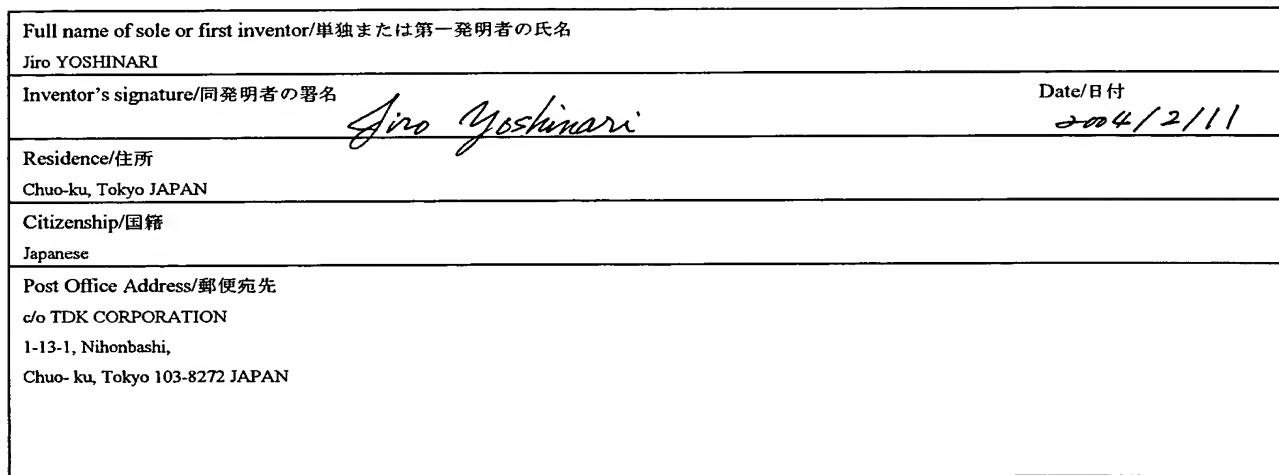 Full name of sole or first inventor/単独または第一発明者の氏名
Jiro YOSHINARI
Inventor's signature/同発明者の署名 Date/日付
Jiro Yoshinari 2004/2/11
Residence/住所
Chuo-ku, Tokyo JAPAN
Citizenship/国籍
Japanese
Post Office Address/郵便宛先
c/o TDK CORPORATION
1-13-1, Nihonbashi,
Chuo- ku, Tokyo 103-8272 JAPAN